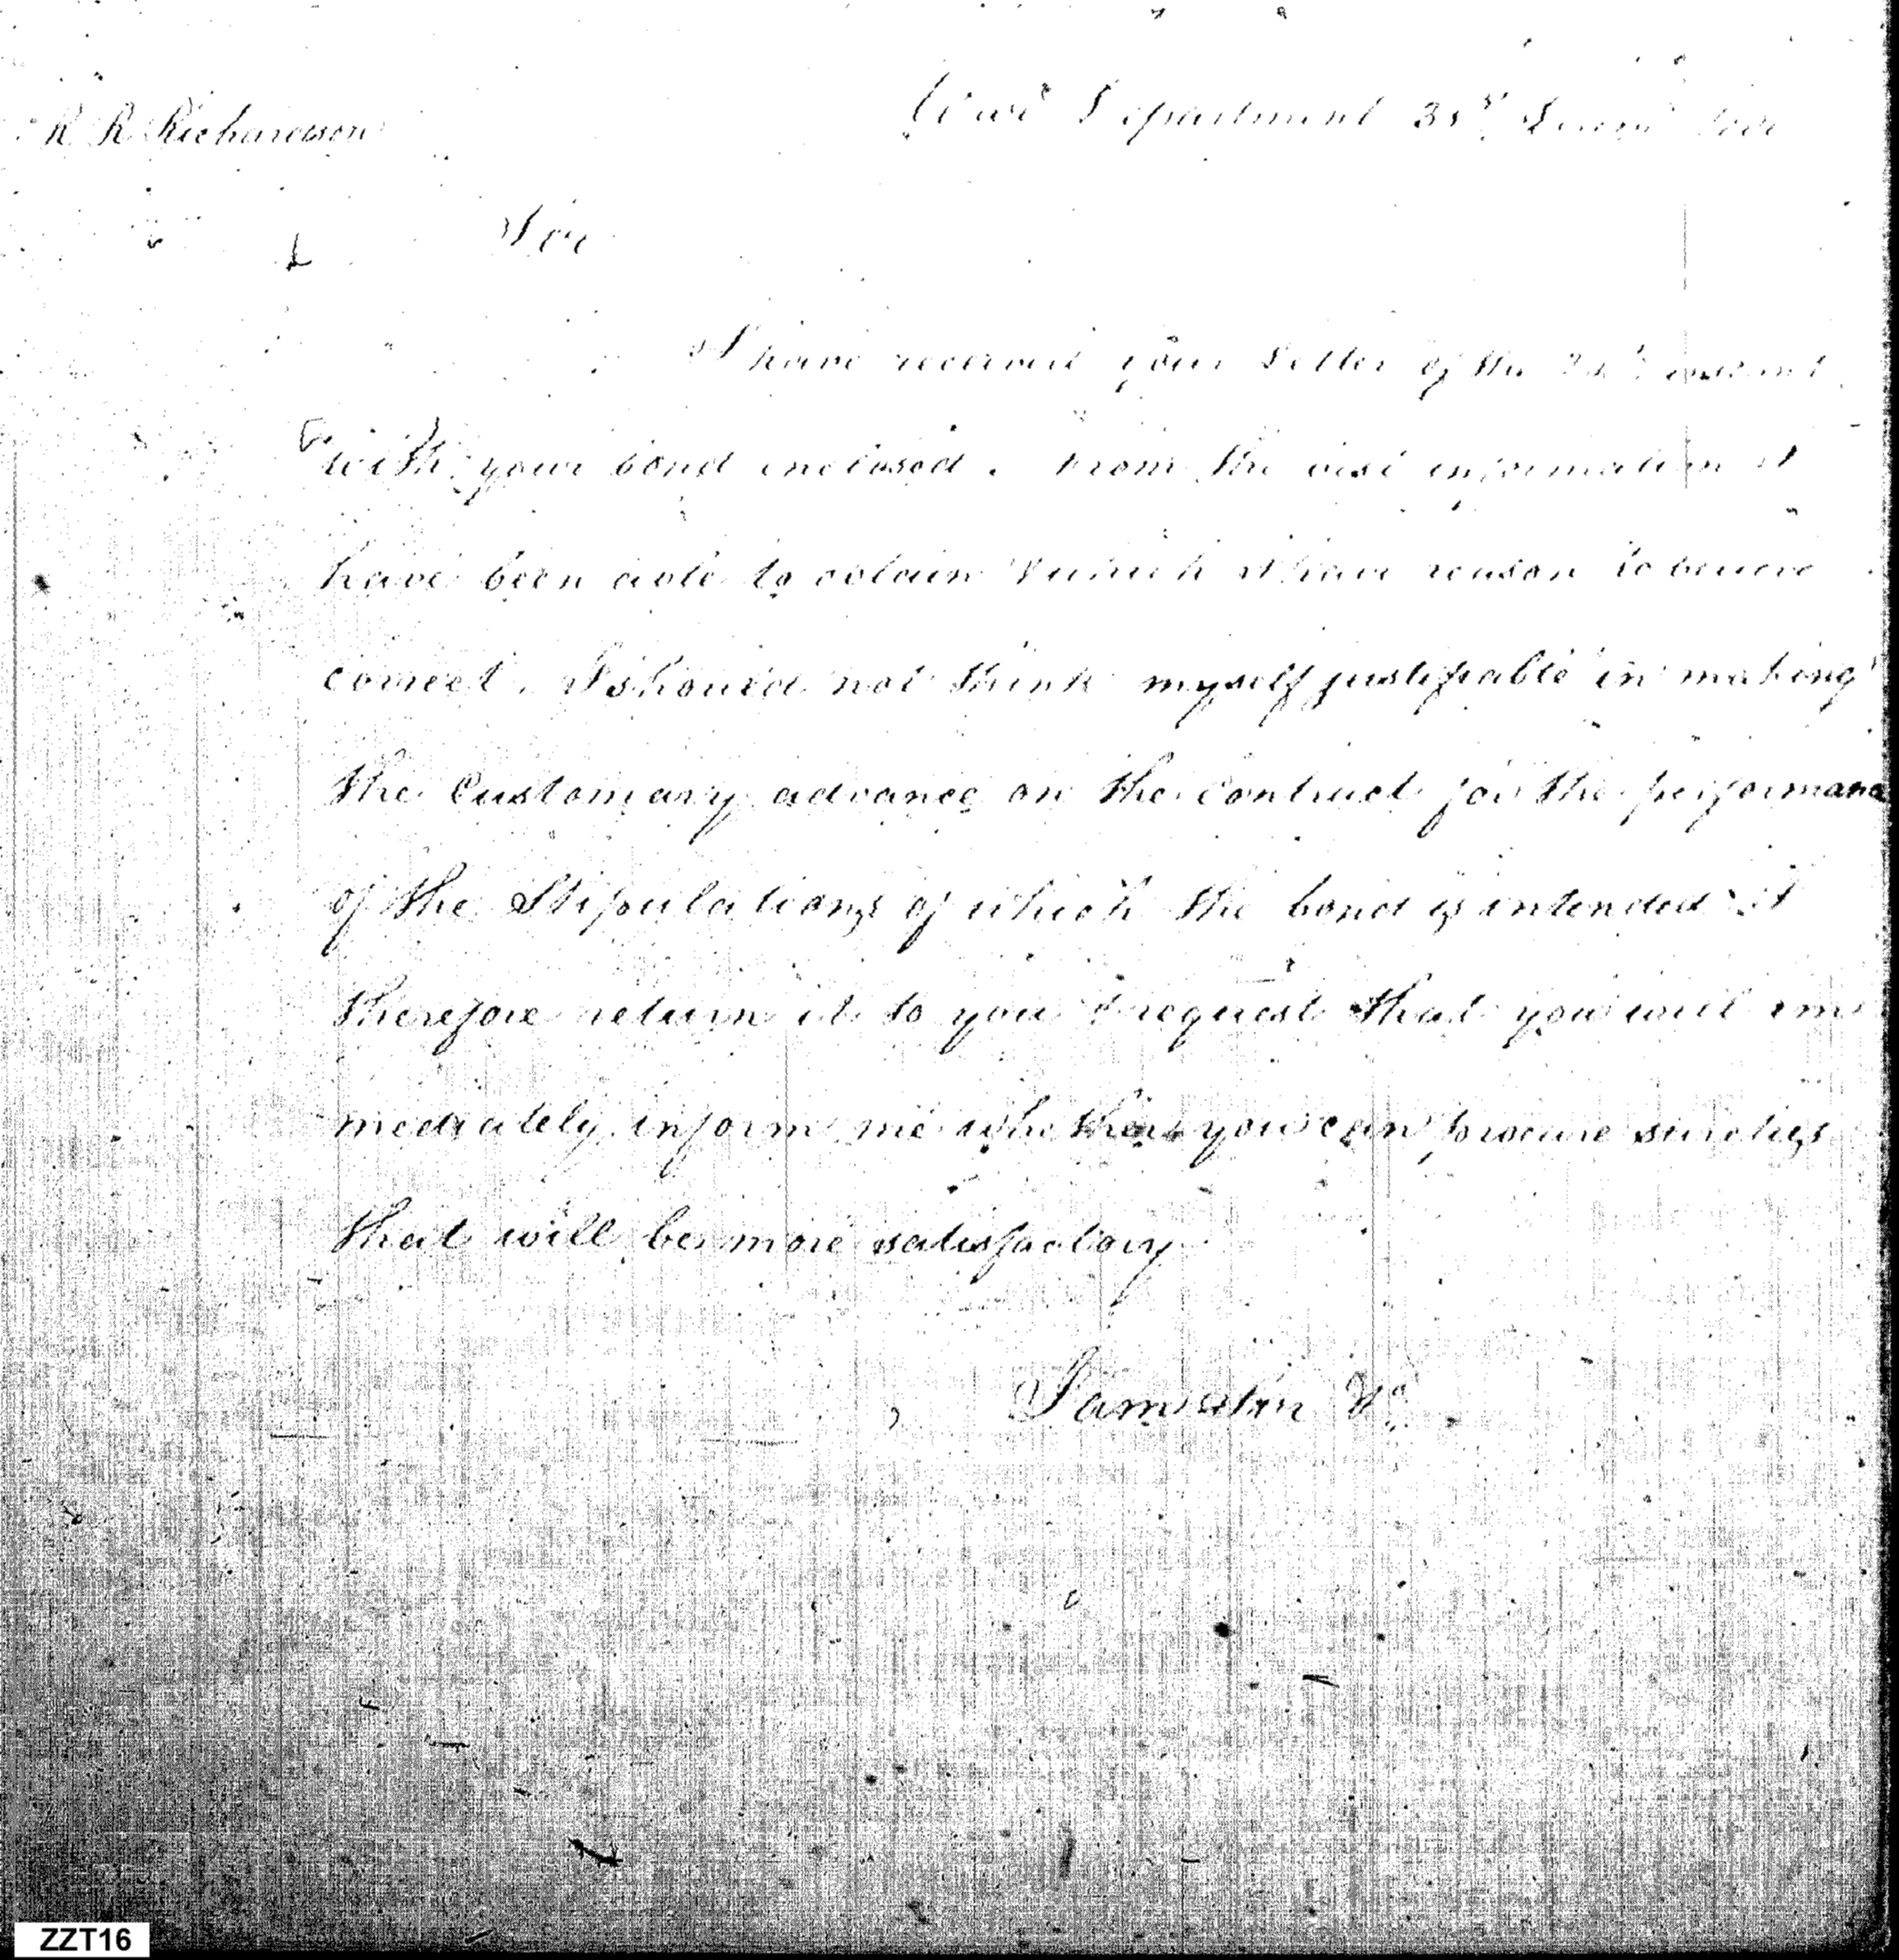 R R Richardson
War Department 31st
Sir
I have received your Letter of the instant
with your bond enclosed. From the best information I
have been able to obtain & which I have reason to believe
correct. I should not think myself justifiable in making
the Customary advance on the Contract for the performance
of the Stipulations of which the bond is intended. I
therefore return it to you & request that you will im
mediately inform me whether you can procure sureties
that will be more satisfactory
I am Sir &c
ZZT16